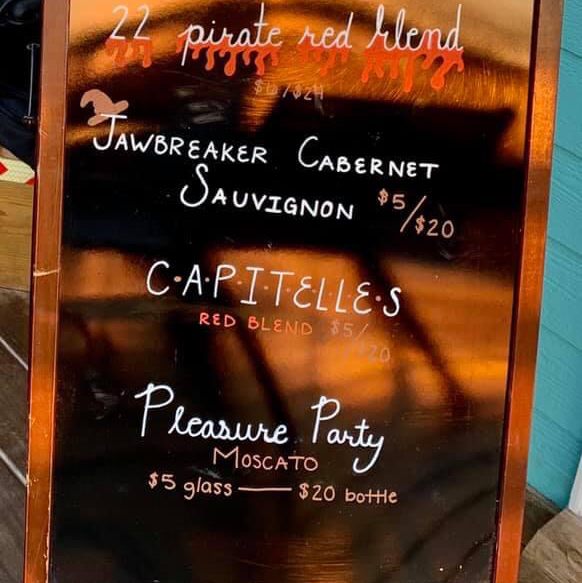 22 pirate red blend
$6/$24
JAWBREAKER CABERNET
SAUVIGNON $5/$20
C·A·P·I·T·E·L·L·E·S
RED BLEND $5/$20
Pleasure Party
MOSCATO
$5 glass — $20 bottle